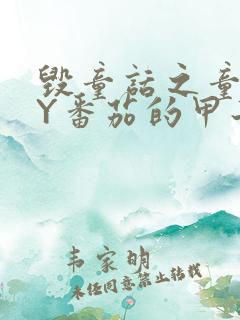 毁童话之童
Y番茄的甲
韦家明
未经同意禁止转载